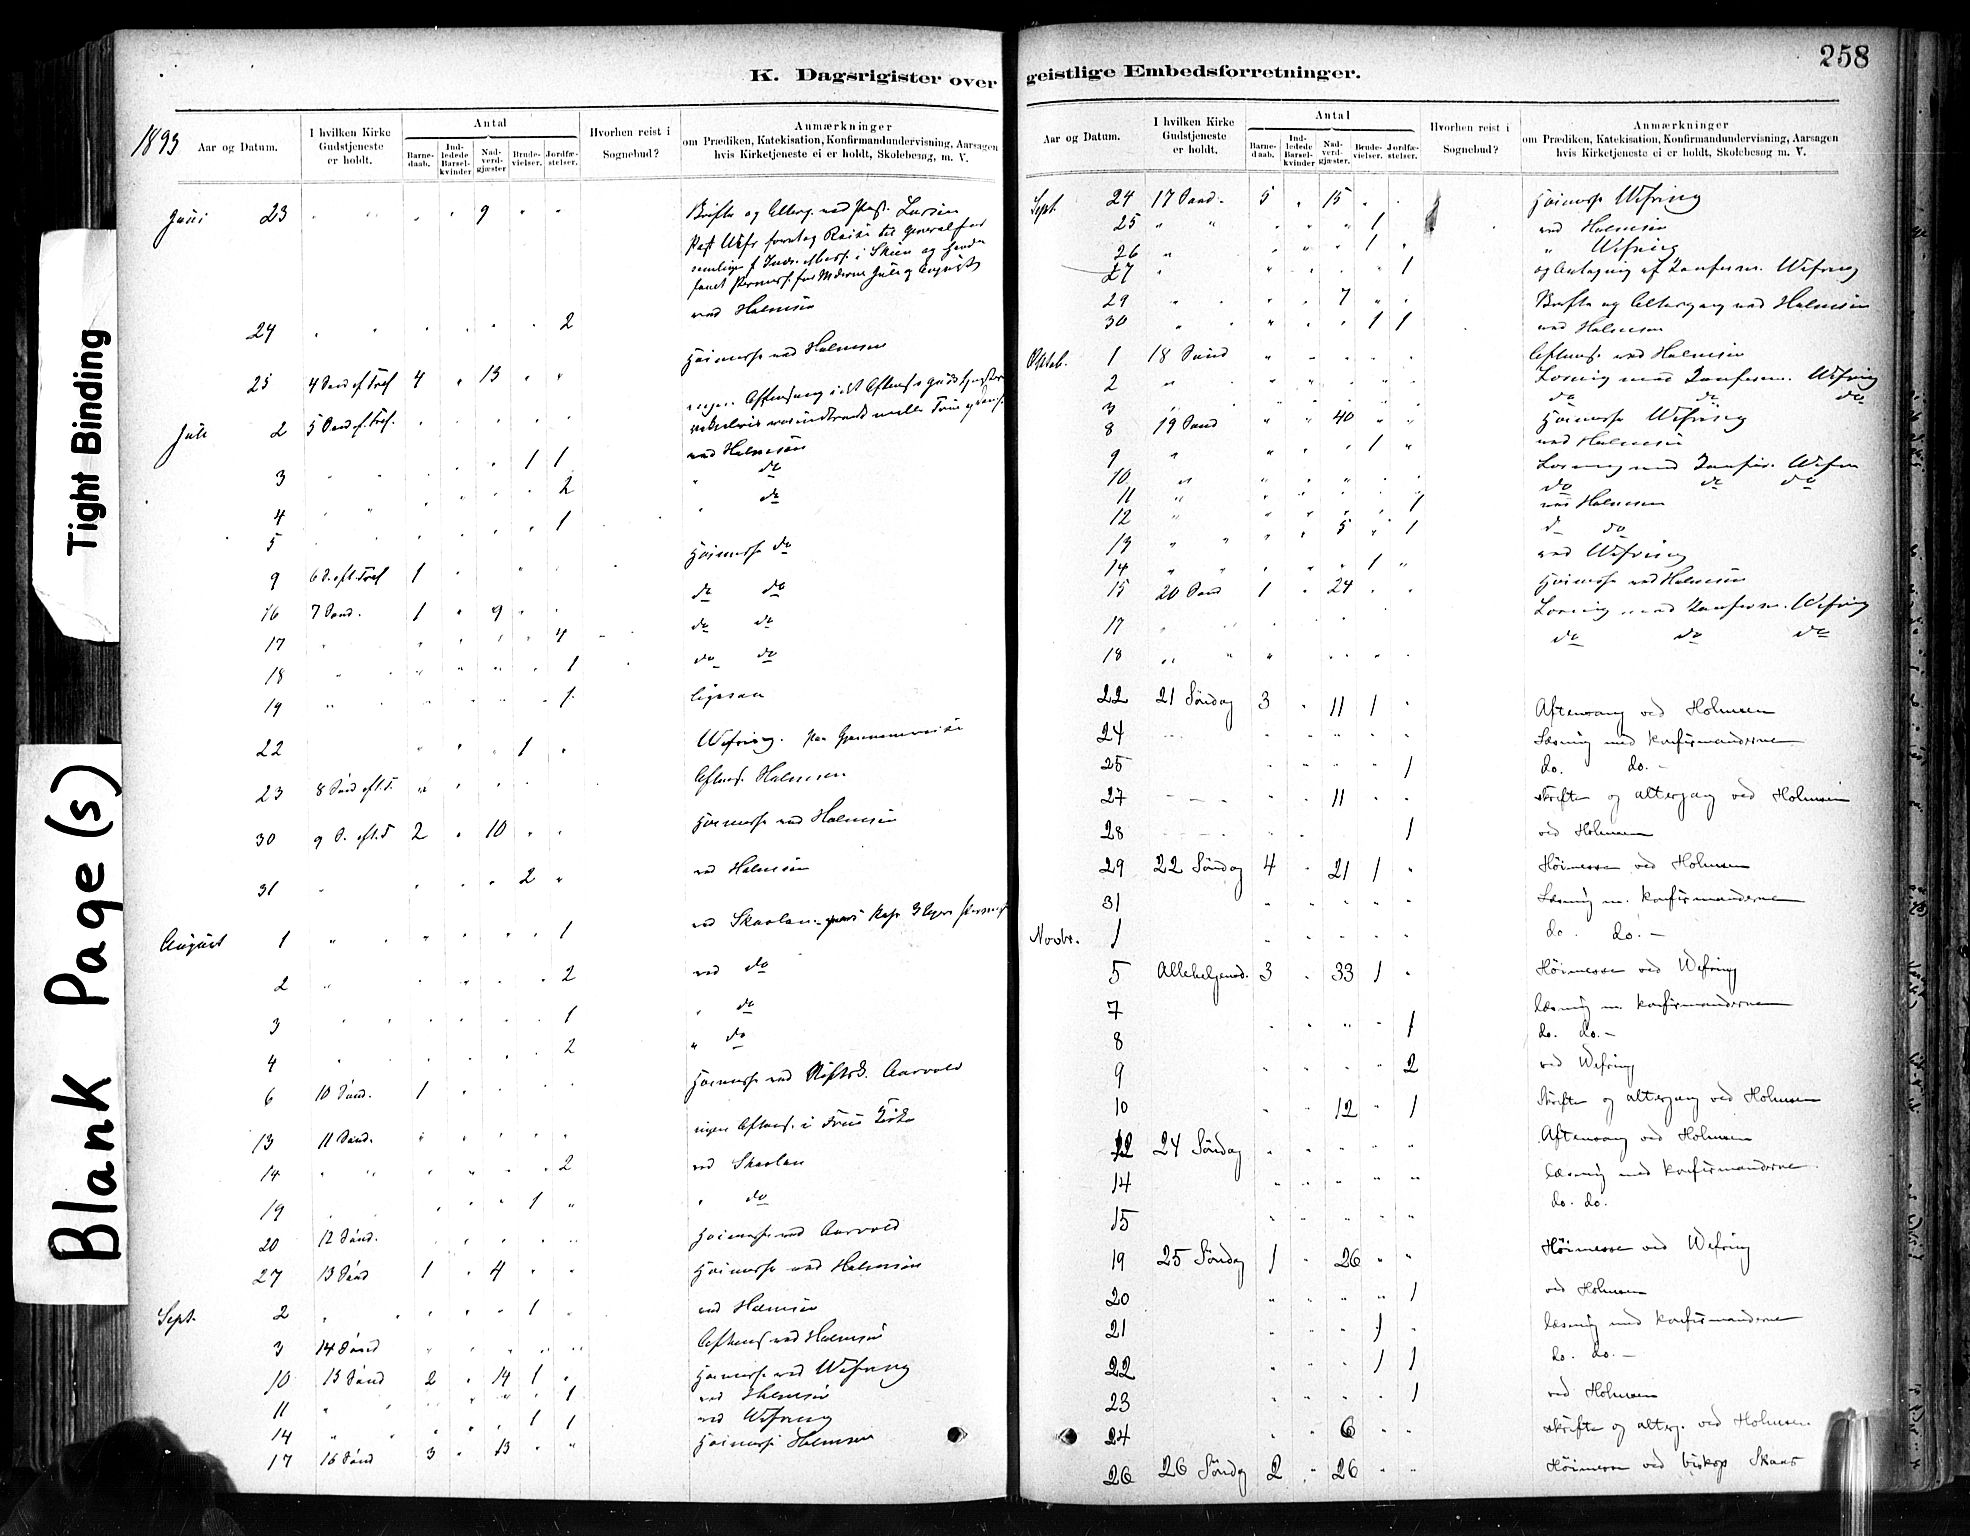 Tight Binding
Blank Page(s)
K. Dagsrigister over
1893
Aar og Datum.
I hvilken Kirke Gudstjeneste er holdt.
Antal
Barnedaab.
Indledede Barselkvinder
Nadverdgjæster
Brudevielser.
Jordfæstelser.
Hvorhen reist i Sognebud?
Anmærkninger
om Prædiken, Katekisation, Konfirmandundervisning, Aarsagen
hvis Kirketjeneste ei er holdt, Skolebesøg, m. V.
Juni 23 9
24 2 ved Holmsen
25 4 Sønd. ef. Tref 4 13 Høimesse ved Holmsen
Juli 2 5 Sønd. ef. Tref.
3 1 1 ved Holmsen
4 2 " do
5 1 " do
9 6 S. eft. Tref 1 Høimesse do
16 7 Sønd. 1 9 do do
17 4 do do
18 1 do do
19 1 ligesaa
22 1 Wefring.
23 8 Sønd eft. T. Aftens. Holmsen
30 9 S. eft. T 2 10 Høimesse ved Holmsen
31 2 ved Holmsen
August 1 1 ved Skaolan
2 2 ved do
3 1 " do
4 2 " do
6 10 Sønd. 1 Høimesse ved Aarvold
13 11 Sønd. ingen Aftens. i
14 2 ved Skaolan
19 1 " do
20 12 Sønd. Høimesse ved Aarvold
27 13 Sønd 1 4 Høimesse ved Holmsen
Sept. 2 1 ved Holmsen
3 14 Sønd Aftens ved Holmsen
10 15 Sønd 2 14 1 Høimesse ved Wefring
11 1 ved Holmsen
14 1 1 ved Wefring
17 16 Sønd 3 13 Høimesse Holmsen
geistlige Embedsforretninger.
258
Aar og Datum.
I hvilken Kirke Gudstjeneste er holdt.
Antal
Barnedaab.
Indledede Barselkvinder
Nadverdgjæster.
Brudevielser.
Jordfæstelser.
Hvorhen reist i Sognebud?
Anmærkninger
om Prædiken, Katekisation, Konfirmandundervisning, Aarsagen
hvis Kirketjeneste ei er holdt, Skolebesøg m. V.
Sept. 24 17 Sønd. 5 15 Høimesse Wefring
25 1 ved Holmsen
26 1 " Wefring
27 1 Wefring
29 7 Skrifte og Altergang ved Holmsen
30 1 1 ved Holmsen
Oktob. 1 18 Sønd Aftens. ved Holmsen
2 Læsning med Konfirm. Wefring
3 do do do
8 19 Sønd 40 Høimesse Wefring
9 1 ved Holmsen
10 Læsning med Konfir. Wefr
11 do do do
12 1 ved Holmsen
13 5 1 do
14 1 ved Wefring
15 20 Sønd 1 24 Høimesse ved Holmsen
17 Læsning med Konfirm. Wefring
18 do do do
22 21 Søndag 3 11 1 Aftensang ved Holmsen
24 Læsning med konfirmanderne
25 1 do. do. -
27 11 Skrifte og altergang ved Holmsen
28 1 ved Holmsen
29 22 Søndag 4 21 1 Høimesse ved Holmsen
31 Læsning m. konfirmanderne
Novbr. 1 do. do. -
5 Allehelgensd. 3 33 1 Høimesse ved Wefring
7 læsning m. konfirmanderne
8 1 do. do. -
9 2 ved Wefring
10 12 1 Skrifte og altergang ved Holmsen
12 24 Søndag Aftensang ved Holmsen
14 læsning med konfirmanderne
15 do. do.
19 25 Søndag 1 26 Høimesse ved Wefring
20 1 ved Holmsen
21 1 læsning med konfirmanderne
22 1 1 do. do. -
23 1 ved Holmsen
24 6 skrifte og alterg. ved Holmsen
26 26 Søndag 2 26 Høimesse ved biskop Skaar